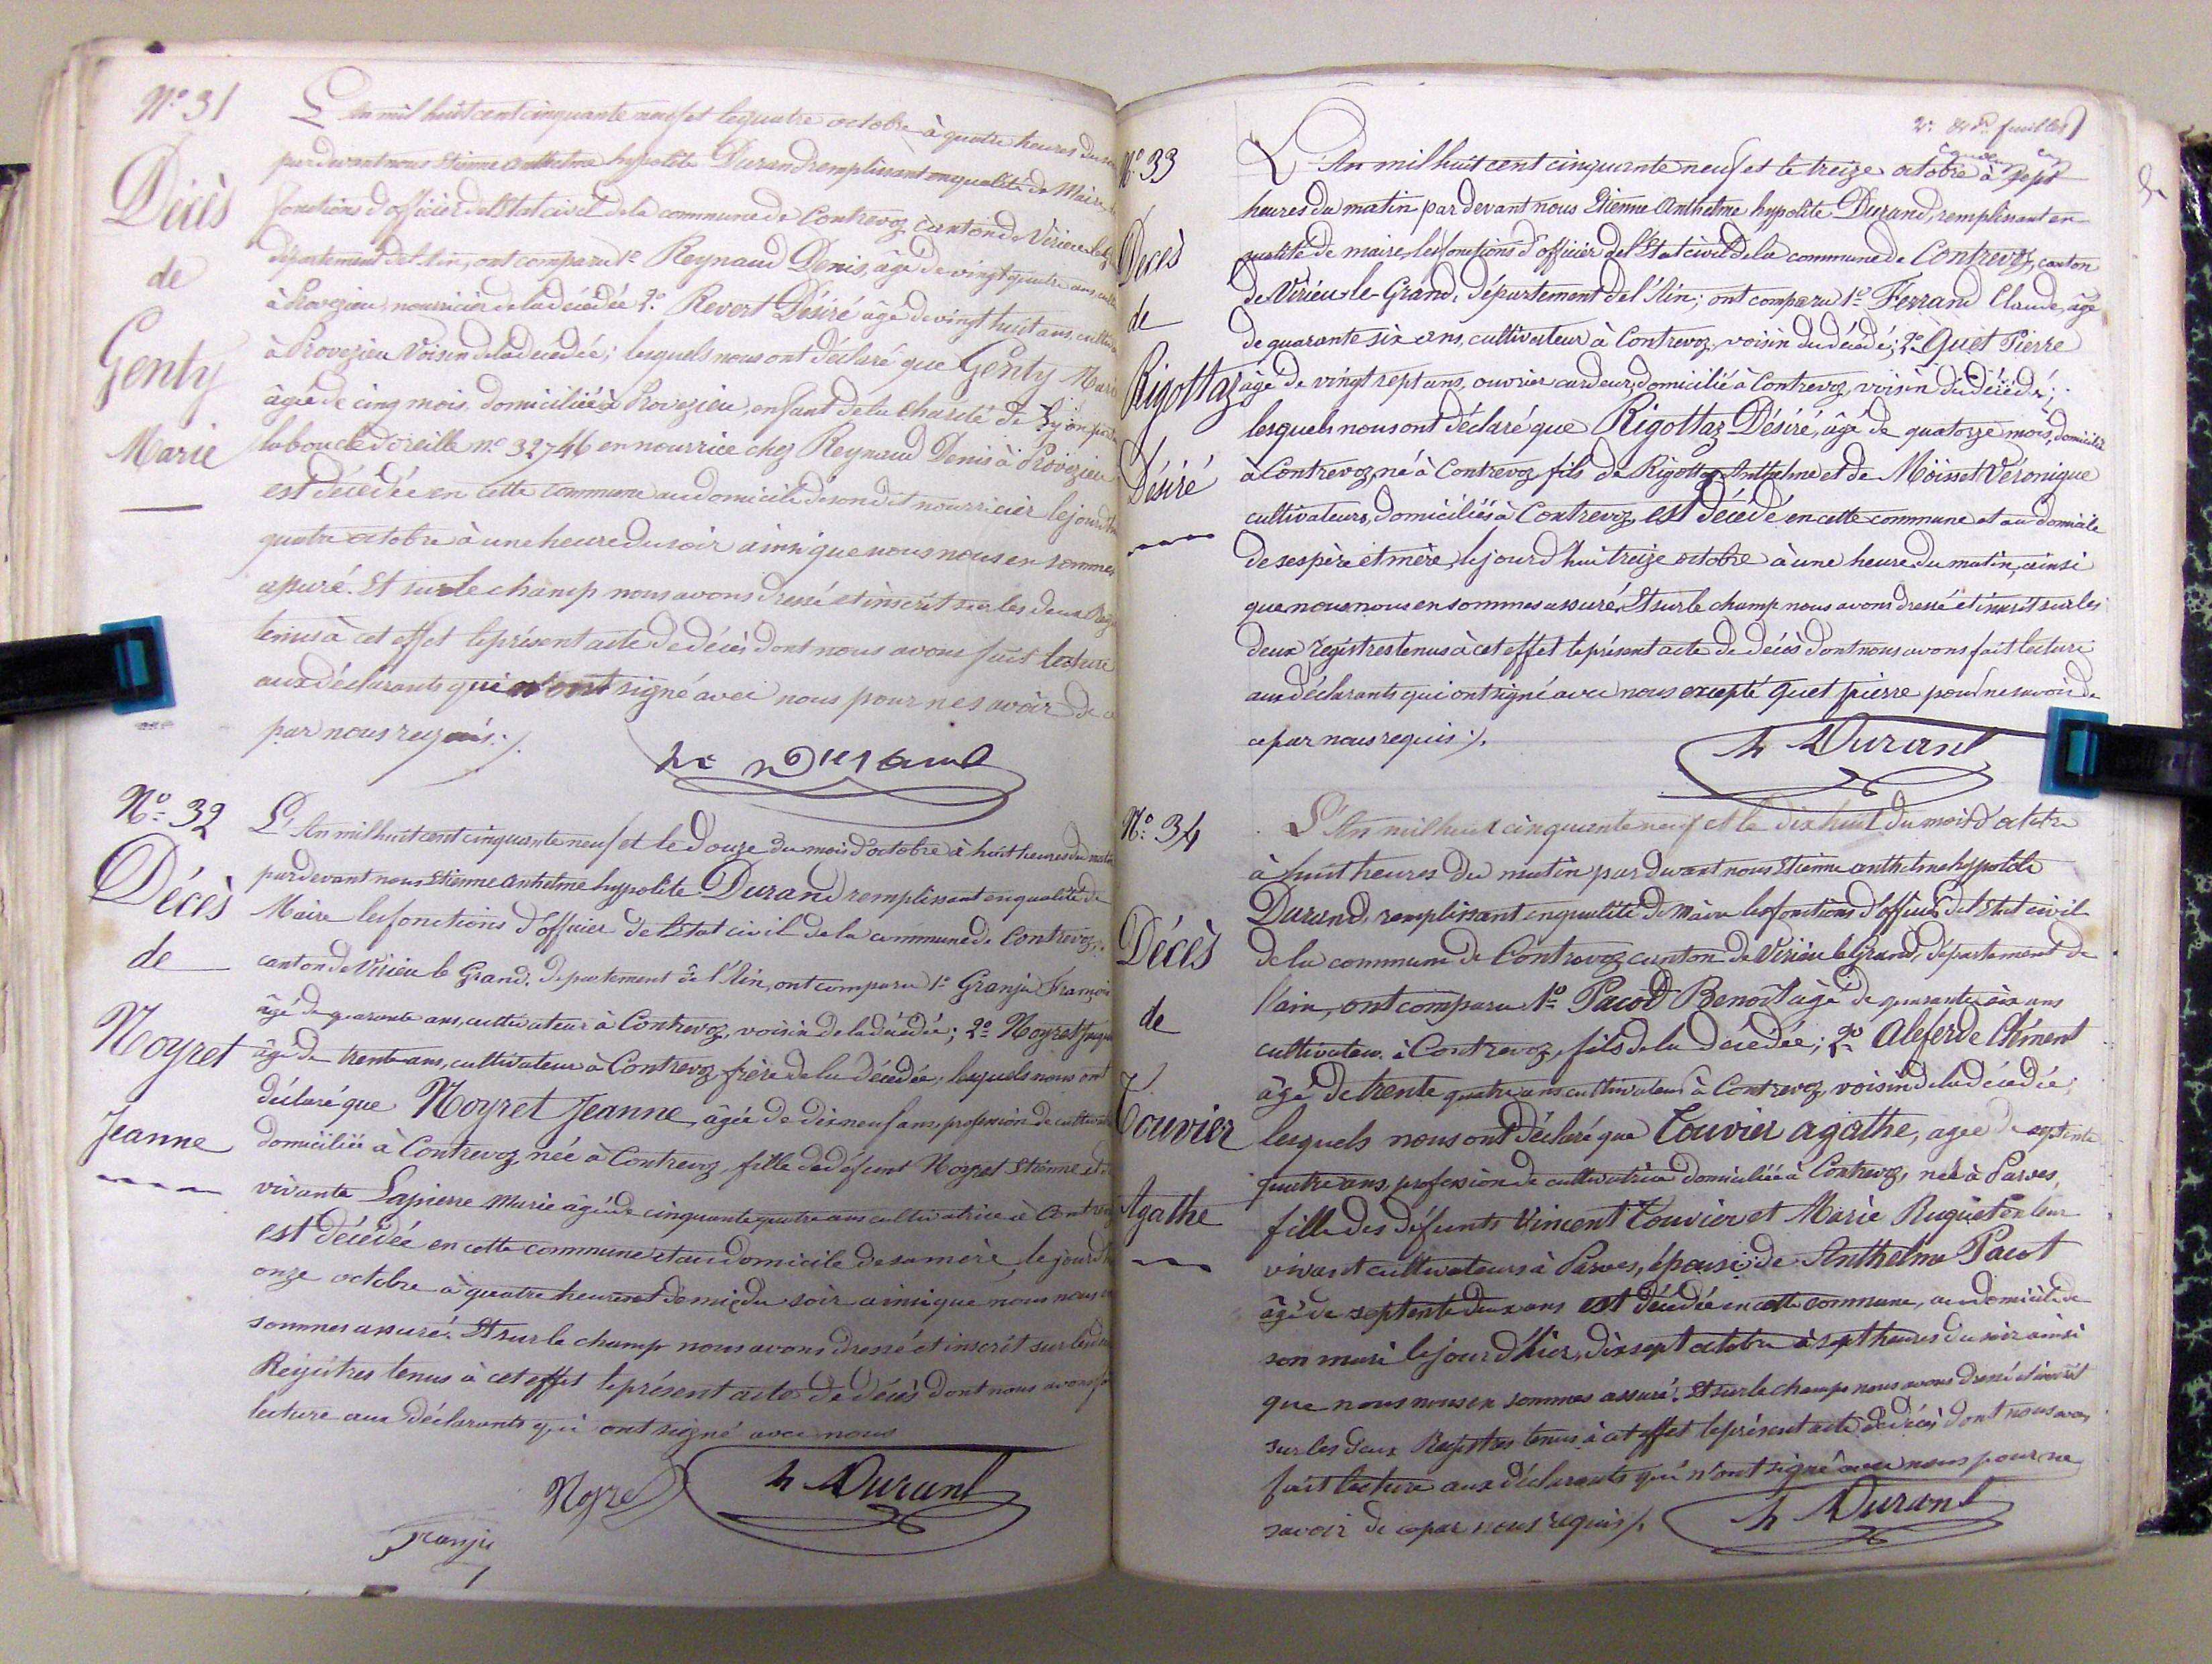 N.o 31
Décès
de
Genty
Marie
L'An mil huit cent cinquante neuf et le quatre octobre à quatre heures du soir
par devant nous Etienne Anthelme hypolite Durand remplissant en qualité de Maire, les
fonctions d'officier de l'Etat civil de la commune de Contrevoz, canton de Virieu-le-G
département de l'Ain, ont comparu 1.o Reynaud Denis, âgé de vingt quatre ans, culti
à Provezieu, nourricier de la décédée 2.o Revert Désiré âgé de vingt huit ans, cultiva
à Provezieu voisin de la décédée; lesquels nous ont déclaré que Genty Marie
âgée de cinq mois, domiciliée à Provezieu, enfant de la charité de Lyon
la boucle d'oreille n.o 32746 en nourrice chez Reynaud Denis à Provezieu
est décédée en cette commune au domicile de son dit nourricier le jourd'hui
quatre octobre à une heure du soir ainsi que nous nous en sommes
assuré. Et sur le champ nous avons dressé et inscrit sur les deux Reg
tenus à cet effet le présent acte de décès dont nous avons fait lecture
aux déclarants qui n'ont signé avec nous pour ne savoir de ce
par nous requis ./.
h Durand
N.o 32
Décès
de
Noyret
Jeanne
L'An mil huit cent cinquante neuf et le Douze du mois d'octobre à huit heures du matin
par devant nous Etienne Anthelme hypolite Durand remplissant en qualité de
Maire les fonctions d'officier de l'Etat civil de la commune de Contrevoz,
canton de Virieu le Grand, département de l'Ain, ont comparu 1.o Granju François
âgé de quarante ans, cultivateur à Contrevoz, voisin de la décédée; 2.o Noyret
âgé de trente ans, cultivateur à Contrevoz frère de la décédée; lesquels nous ont
déclaré que Noyret Jeanne, âgée de dix neuf ans, profession de cultivat
domiciliée à Contrevoz née à Contrevoz, fille de défunt Noyret Etienne et d
vivante Lapierre Marie âgée de cinquante quatre ans cultivatrice à Contrevoz
est décédée en cette commune et au domicile de sa mère, le jourd'h
onze octobre à quatre heures et demie du soir ainsi que nous nous en
sommes assuré. Et sur le champ nous avons dressé et inscrit sur les deux
Registres tenus à cet effet le présent acte de décès dont nous avons fait
lecture aux déclarants qui ont signé avec nous
Noyret
h Durand
Granju
2.e et d.re feuilles
N.o 33
Décès
de
Rigottaz
Désiré
L'An mil huit cent cinquante neuf et le treize octobre à Sept
heures du matin par devant nous Etienne Anthelme hypolite Durand, remplissant en
qualité de maire, les fonctions d'officier de l'Etat civil de la commune de Contrevoz, canton
de Virieu-le-Grand, département de l'Ain; ont comparu 1.o Ferrand Claude, âgé
de quarante six ans, cultivateur à Contrevoz, voisin du décédé; 2.o Quet Pierre
âgé de vingt sept ans, ouvrier cardeur, domicilié à Contrevoz, voisin du décédé;
lesquels nous ont déclaré que Rigottaz Désiré, âgé de quatorze mois, domicilié
à Contrevoz, né à Contrevoz fils de Rigottaz Anthelme et de Moisset Véronique
cultivateurs, domiciliés à Contrevoz, est décédé en cette commune et au domicile
de ses père et mère, le jourd'hui treize octobre à une heure du matin, ainsi
que nous nous en sommes assuré. Et sur le champ nous avons dressé et inscrit sur les
deux registres tenus à cet effet le présent acte de décès dont nous avons fait lecture
aux déclarants qui ont signé avec nous excepté Quet pierre pour ne savoir de
ce par nous requis ./.
h Durand
N.o 34
Décès
de
Touvier
Agathe
L'An mil huit cinquante neuf et le dix huit du mois d'octobre
à huit heures du matin par devant nous Etienne anthelme hypolite
Durand, remplissant en qualité de Maire les fonctions d'officier de l'Etat civil
de la commune de Contrevoz canton de Virieu le Grand, département de
l'ain, ont comparu 1.o Pacod Benoît âgé de quarante six ans
cultivateur à Contrevoz, fils de la décédée; 2.o Aleferde Clément
âgé de trente quatre ans cultivateur à Contrevoz, voisin de la décédée;
lesquels nous ont déclaré que Touvier agathe, agée de septente
quatre ans, profession de cultivatrice domiciliée à Contrevoz, née à Parves,
fille des défunts Vincent Touvier et Marie Ruguet en leur
vivant cultivateurs à Parves, épouse de Anthelme Pacot
âgé de septente deux ans est décédée en cette commune, au domicile de
son mari le jour d'hier, dix sept octobre à sept heures du soir ainsi
que nous nous en sommes assuré. Et sur le champ nous avons dressé et inscrit
sur les deux Registres tenus à cet effet le présent acte de décès dont nous avons
fait lecture aux déclarants qui n'ont signé avec nous pour ne
savoir de ce par nous requis ./.
h Durand